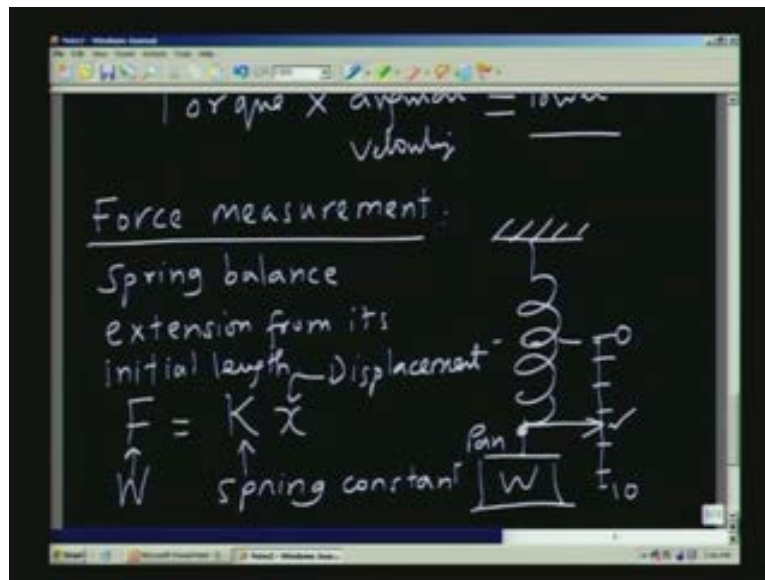 Torque X angular = Power
velocity
Force measurement:
Spring balance
extension from its
initial length Displacement
F = K x
W spring constant
0
Pan
W
10